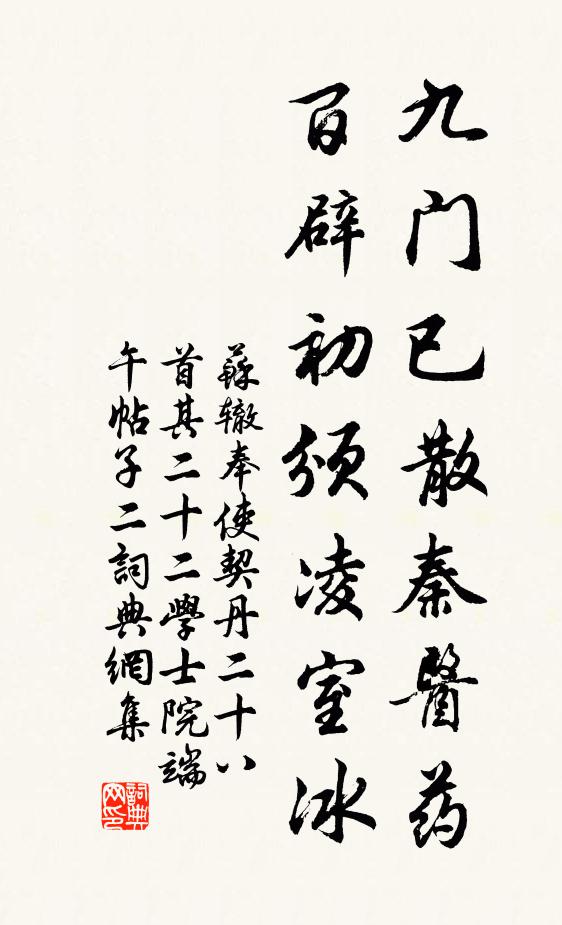 九门已散秦醫药
百辟初颁凌室冰
蘇辙奉使契丹二十八
首其二十二學士院端
午帖子二詞典網集
詞典网印